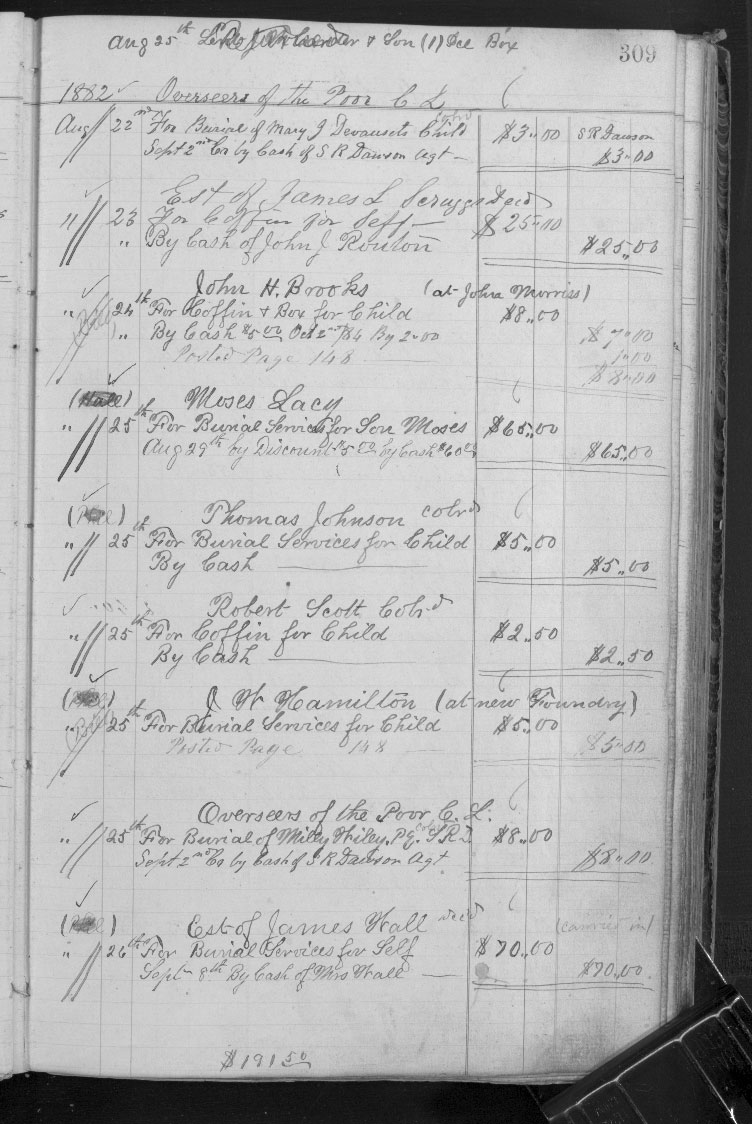 Aug 25th & Son (1) Ice Box
309
1882 Overseers of the Poor C L
Aug 22nd For Burial of Mary J Devausets Child Colrd $3,,00 S R Dawson
Sept 2nd Cr by Cash of S R Dawson Agt $3,,00
Est of James L Scruggs Decd
" 23 For Coffin for Self $25,,00
" By Cash of John J Routon $25,,00
John H. Brooks (at John Morriss)
" 24th For Coffin & Box for Child $8,,00
" By Cash $5 00 Oct 2nd /84 By 2,,00 $7,,00
Posted Page 148 1,,00
$8,,00
(Hall) Moses Lacy
" 25th For Burial Services for Son Moses $65,,00
Aug 29th by Discount $5 00 by Cash $60 00 $65,,00
Thomas Johnson Colrd
" 25th For Burial Services for Child $5,,00
By Cash $5,,00
Robert Scott Colrd
" 25th For Coffin for Child $2,,50
By Cash $2,,50
J W Hamilton (at new Foundry)
" 25th For Burial Services for Child $5,,00
Posted Page 148 $5,,00
Overseers of the Poor C. L.
" 25th For Burial of Milly Wiley, $8,,00
Sept 2nd Cr by Cash of S R Dawson Agt $8,,00
Est of James Wall decd (carried in)
" 26th For Burial Services for Self $70,,00
Sept 8th By Cash of Mrs Wall $70,,00
$191 50